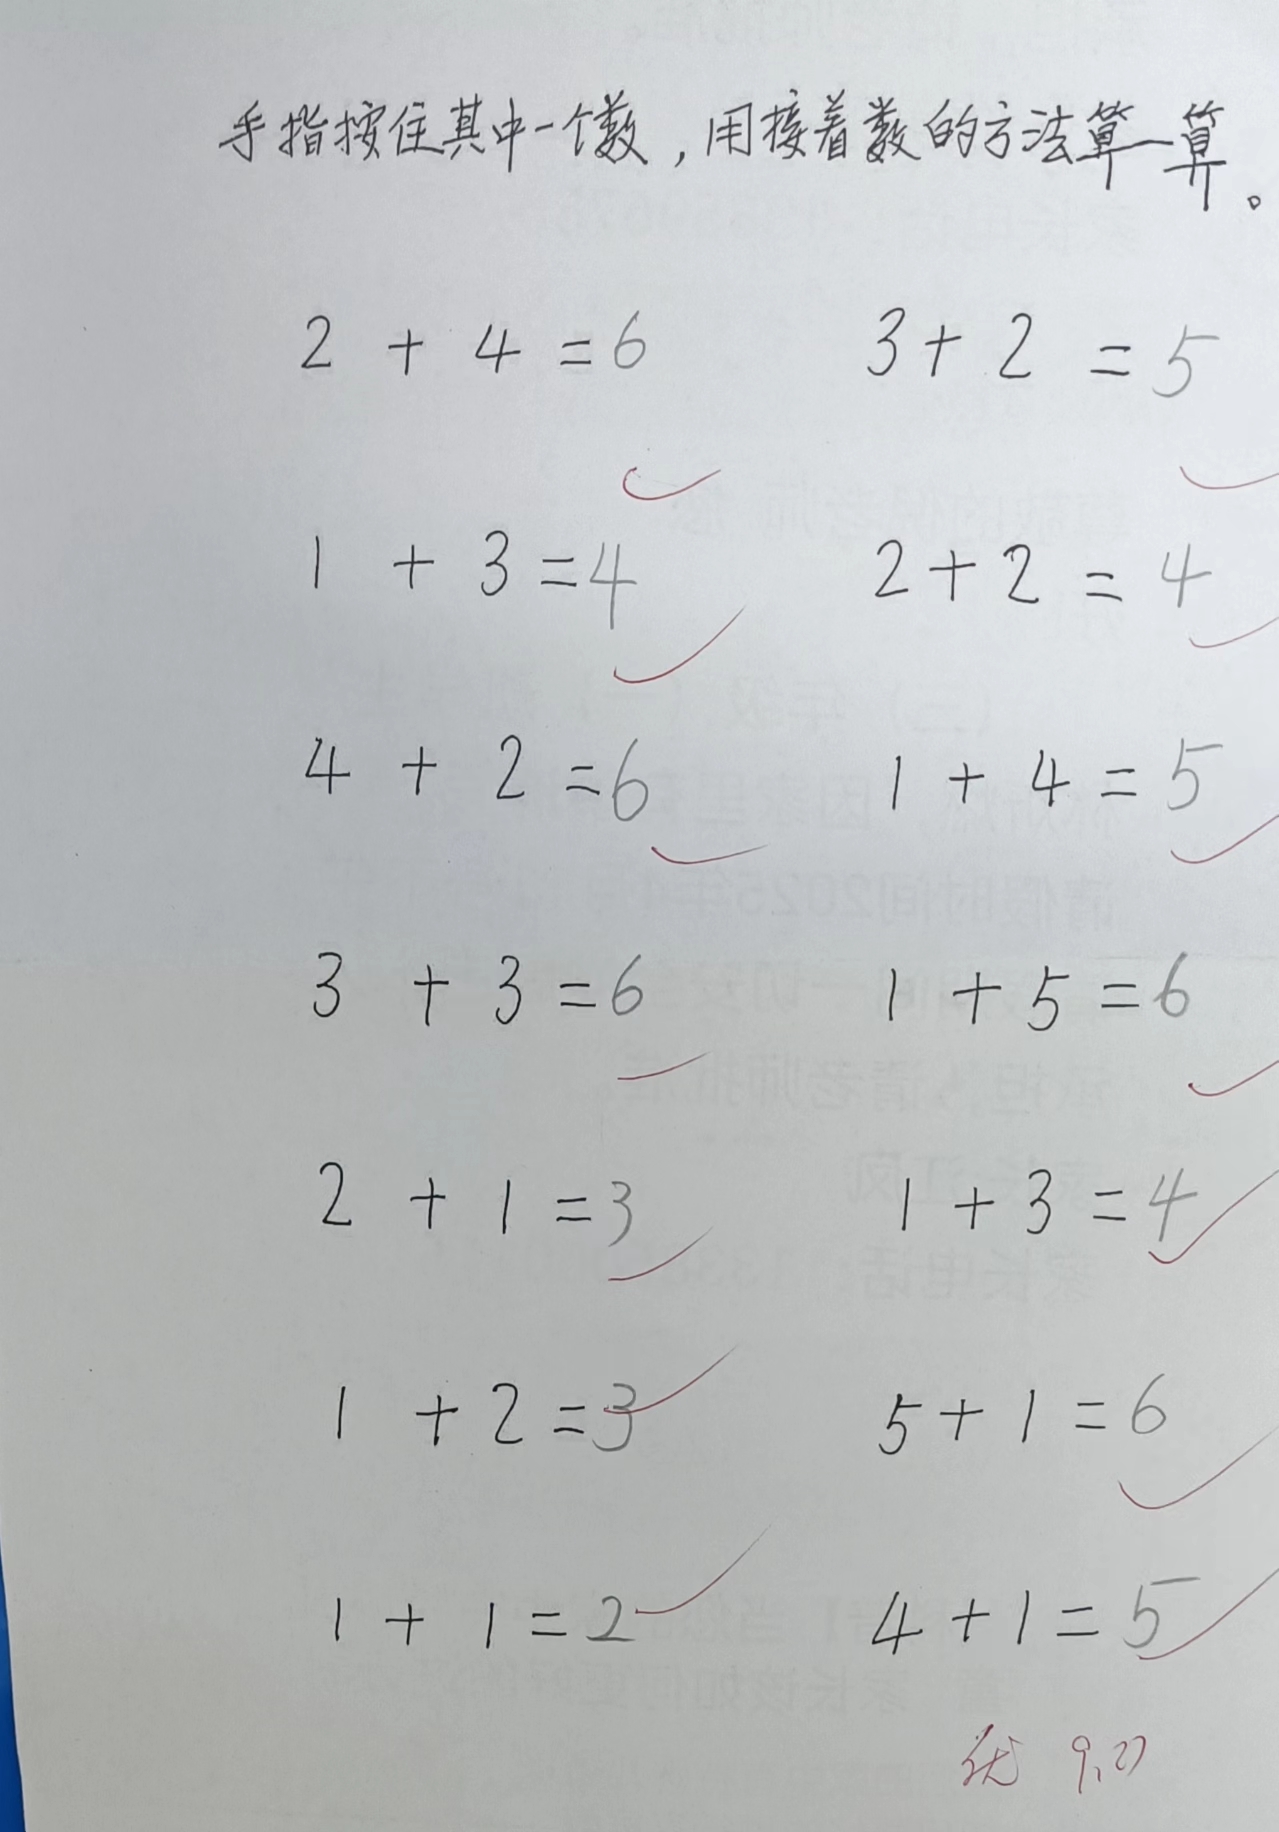 手指按住其中一个数，用接着数的方法算一算。
2 + 4 = 6 3 + 2 = 5
1 + 3 = 4 2 + 2 = 4
4 + 2 = 6 1 + 4 = 5
3 + 3 = 6 1 + 5 = 6
2 + 1 = 3 1 + 3 = 4
1 + 2 = 3 5 + 1 = 6
1 + 1 = 2 4 + 1 = 5
优